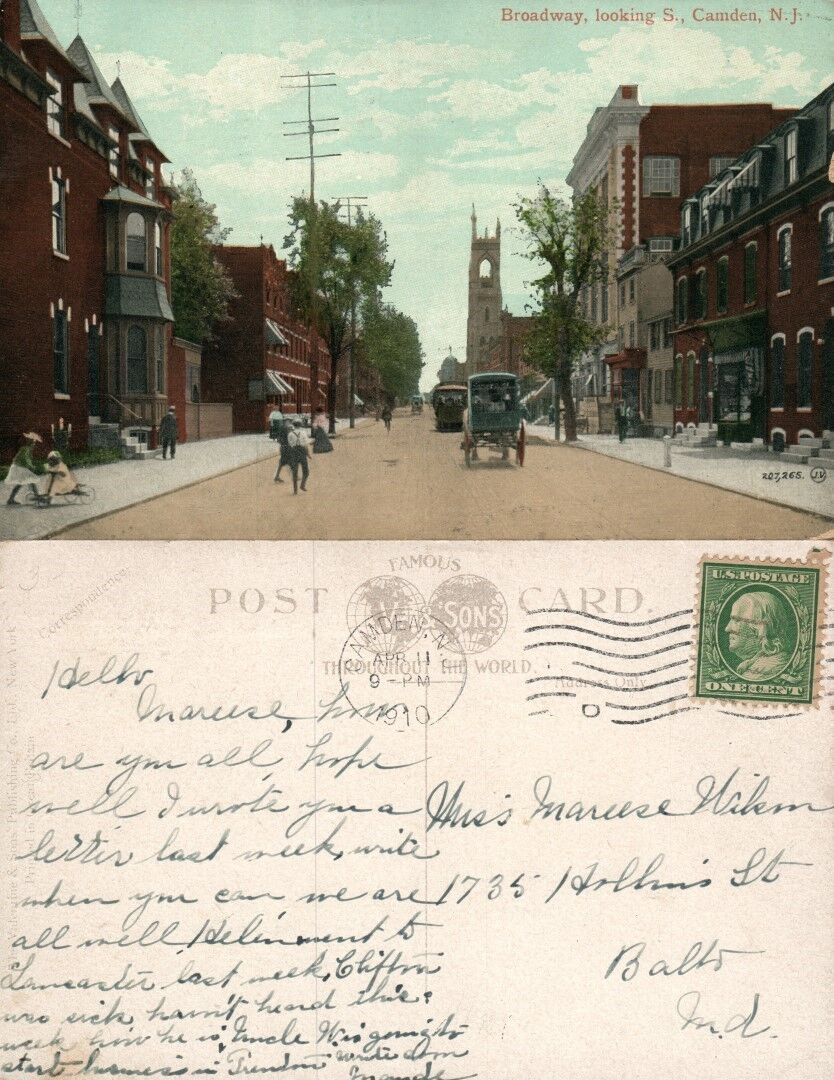 Broadway, looking S., Camden, N.J.
207,265. J.V.
FAMOUS
POST CARD.
V. & SONS
THROUGHOUT THE WORLD.
Correspondence
Address Only
CAMDEN, N.
APR 11
9 - PM
1910
D
U.S. POSTAGE
ONE CENT
Hello
Mareese, how
are you all, hope
well I wrote you a
letter last week, write
when you can we are
all well, Helen went to
Lancaster last week, Clifton
was sick havn't heard this
week how he is, Uncle W. is going to
start business in Trenton write soon
Maude
Miss Mareese Wilson
1735 Hollins St
Balto
Md.
& Sons Publishing Co., Ltd., New York